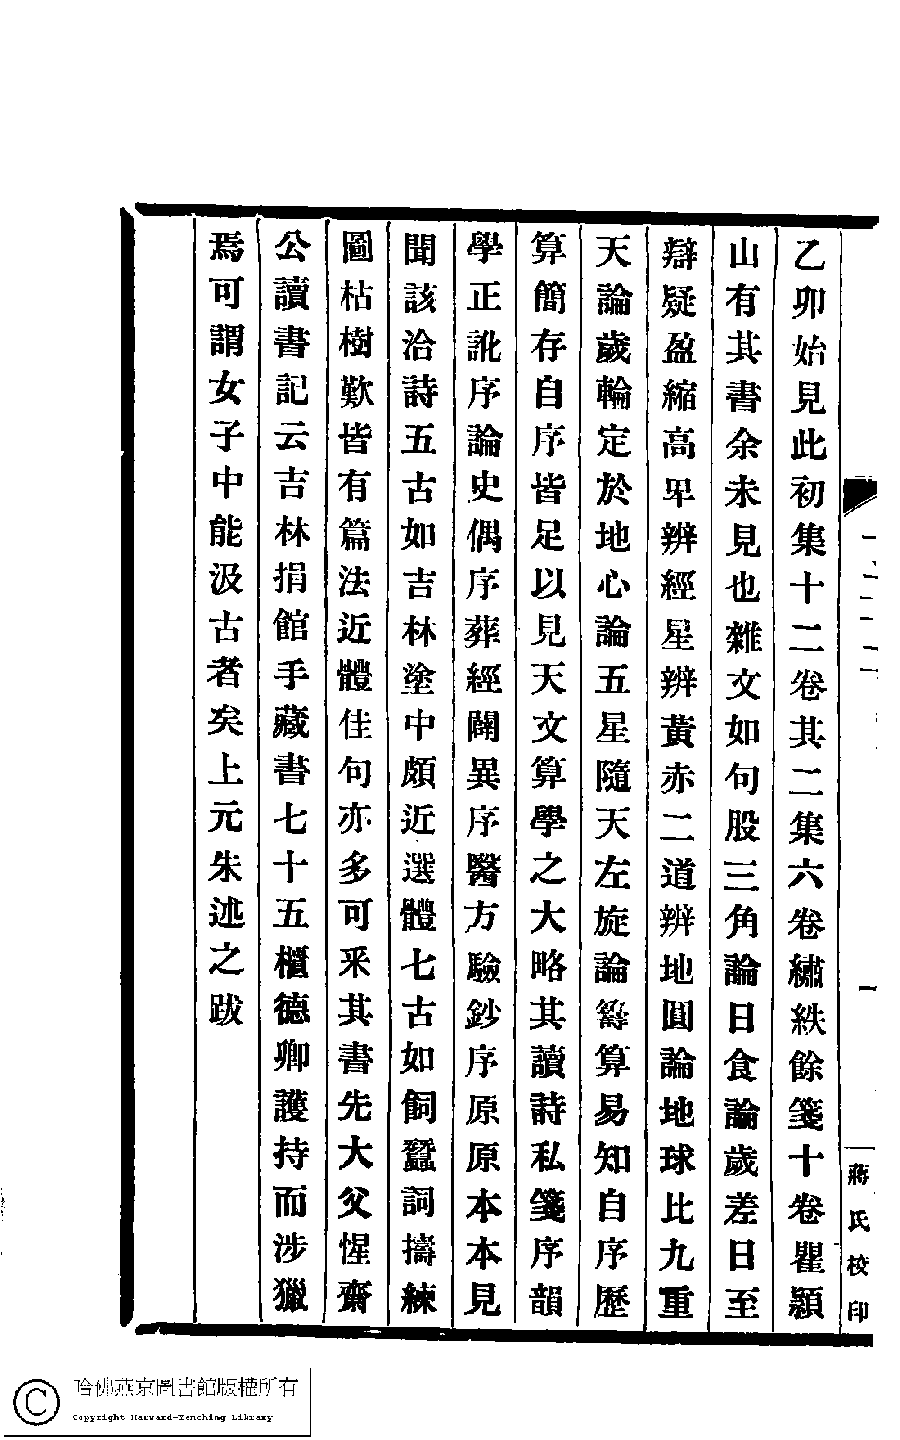 乙卯始見此初集十二卷其二集六卷繡紩餘箋十卷瞿頴
山有其書余未見也雜文如句股三角論日食論歲差日至
辯疑盈縮高卑辨經星辨黃赤二道辨地圓論地球比九重
天論歲輪定於地心論五星隨天左旋論籌算易知自序歷
算簡存自序皆足以見天文算學之大略其讀詩私箋序韻
學正訛序論史偶序葬經闢異序醫方驗鈔序原原本本見
聞該洽詩五古如吉林塗中頗近選體七古如飼蠶詞擣練
圖枯樹歎皆有篇法近體佳句亦多可采其書先大父惺齋
公讀書記云吉林捐館手藏書七十五櫃德卿護持而涉獵
焉可謂女子中能汲古者矣上元朱述之跋
蔣氏校印
哈佛燕京圖書館版權所有
Copyright Harvard-Yenching Library